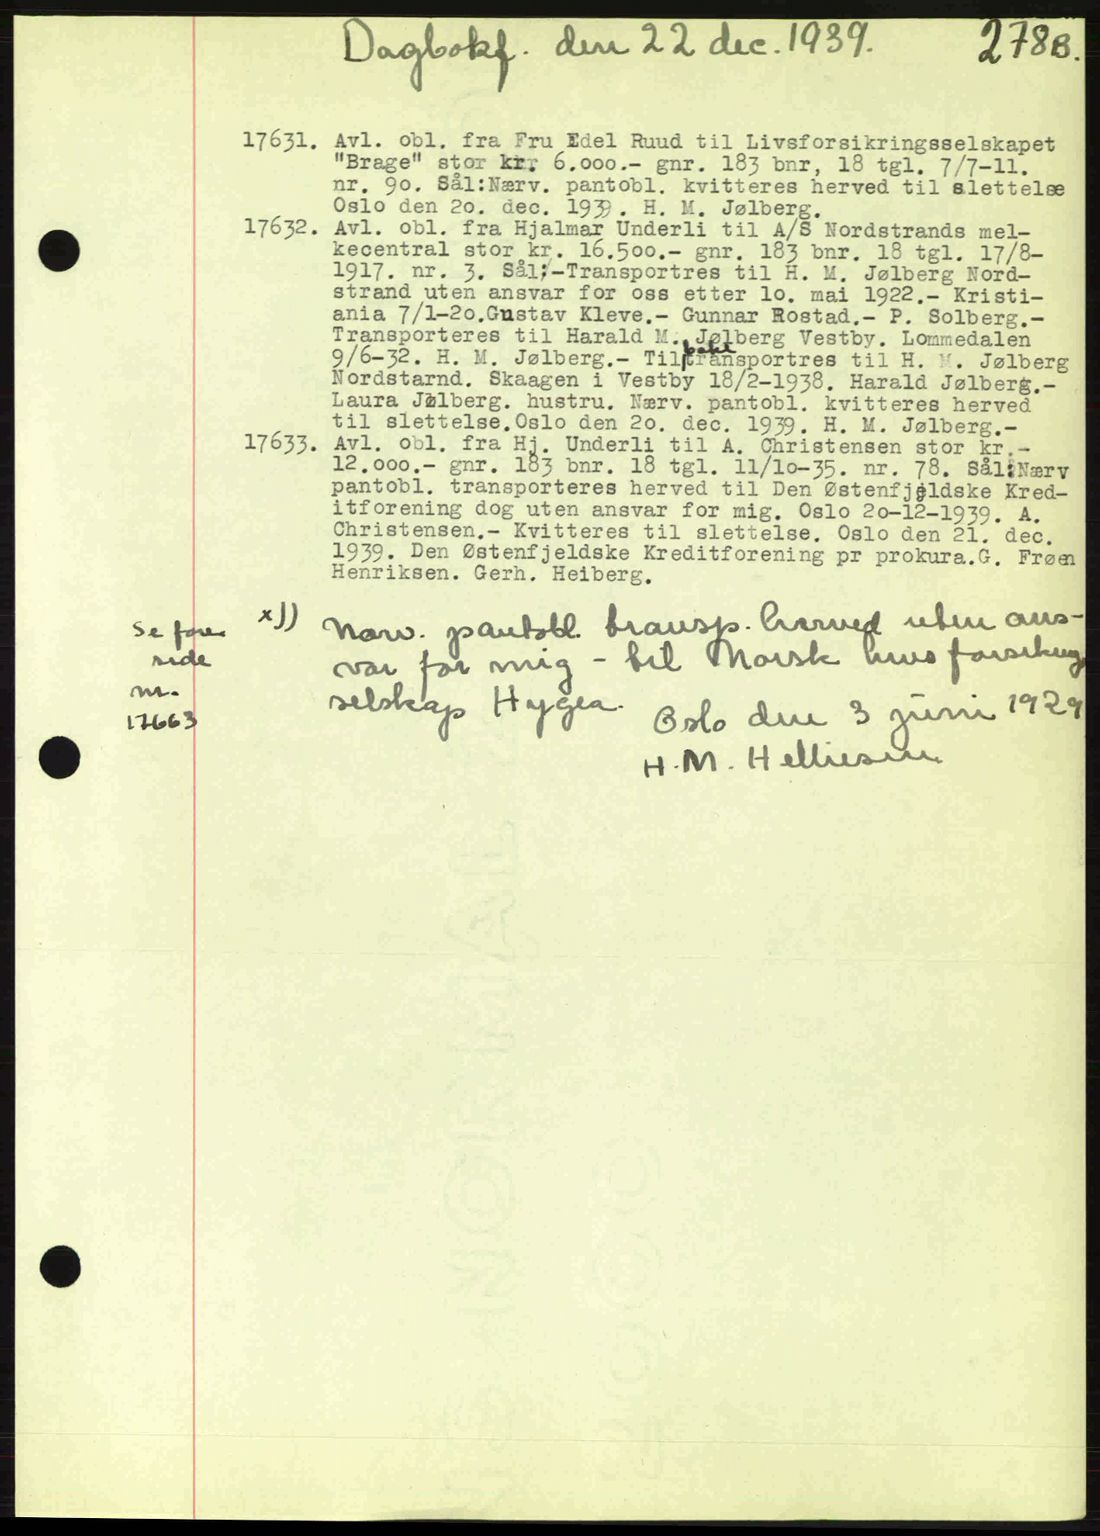 Dagbokf. den 22 dec. 1939. 278B.
17631. Avl. obl. fra Fru Edel Ruud til Livsforsikringsselskapet
"Brage" stor kr. 6.000.- gnr. 183 bnr, 18 tgl. 7/7-11.
nr. 90. Sål:Nærv. pantobl. kvitteres herved til slettelse
Oslo den 20. dec. 1939. H. M. Jølberg.
17632. Avl. obl. fra Hjalmar Underli til A/S Nordstrands mel-
kecentral stor kr. 16.500.- gnr. 183 bnr. 18 tgl. 17/8-
1917. nr. 3. Sål:-Transportres til H. M. Jølberg Nord-
strand uten ansvar for oss etter 10. mai 1922.- Kristi-
ania 7/1-20.Gustav Kleve.- Gunnar Rostad.- P. Solberg.-
Transporteres til Harald M. Jølberg Vestby. Lommedalen
9/6-32. H. M. Jølberg.- Tilbaketransportres til H. M. Jølberg
Nordstarnd. Skaagen i Vestby 18/2-1938. Harald Jølberg.-
Laura Jølberg. hustru. Nærv. pantobl. kvitteres herved
til slettelse.Oslo den 20. dec. 1939. H. M. Jølberg.-
17633. Avl. obl. fra Hj. Underli til A. Christensen stor kr.-
12.000.- gnr. 183 bnr. 18 tgl. 11/10-35. nr. 78. Sål:Nærv
pantobl. transporteres herved til Den Østenfjeldske Kred-
itforening dog uten ansvar for mig. Oslo 20-12-1939. A.
Christensen.- Kvitteres til slettelse. Oslo den 21. dec.
1939. Den Østenfjeldske Kreditforening pr prokura.G. Frøen
Henriksen. Gerh. Heiberg.
Se fore
side
nr.
17663
x)) Nærv. pantobl. transp. herved uten ans-
var for mig - til Norsk livsforsikring
selskap Hygea.
Oslo den 3 juni 1929
H. M. Helliesen